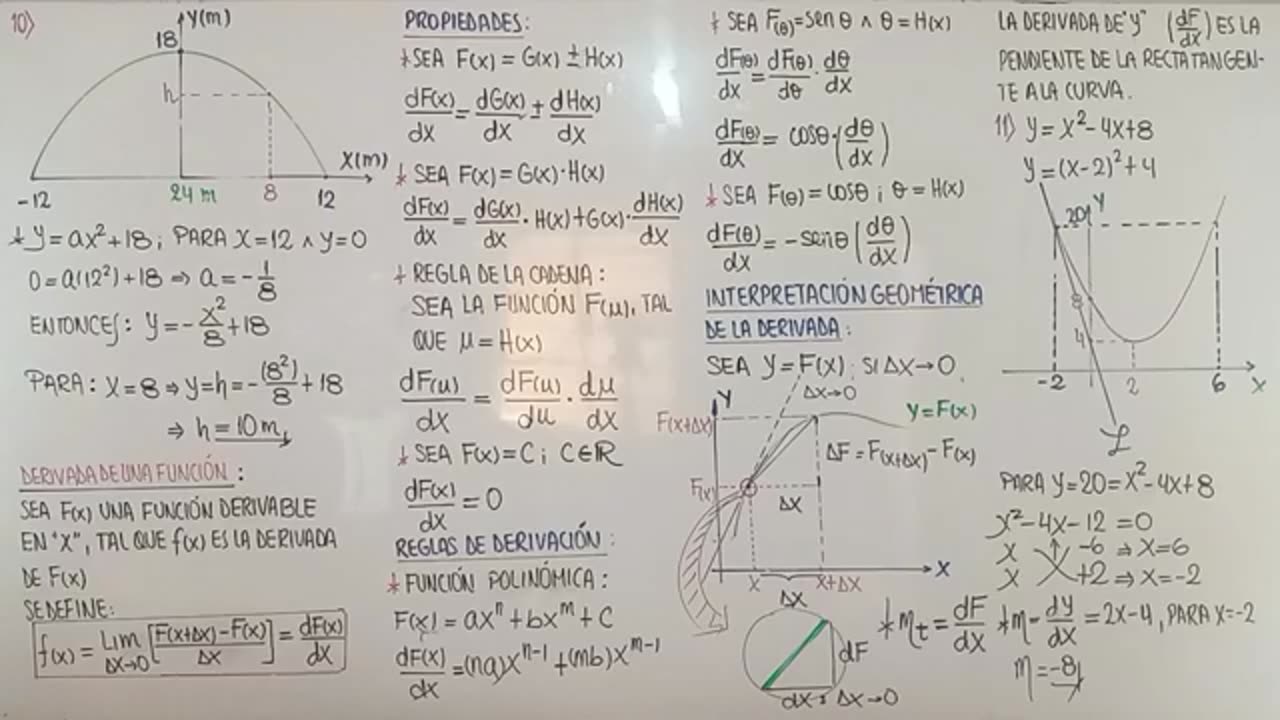 10)
Y(m)
18
h
X(m)
-12
24 m
8
12
* y = ax²+18 ; PARA X=12 ∧ y=0
0 = a(12²)+18 ⇒ a = -1/8
ENTONCES: y = -x²/8 + 18
PARA: X=8 ⇒ y=h= -(8²)/8 + 18
⇒ h = 10m
DERIVADA DE UNA FUNCIÓN :
SEA F(x) UNA FUNCIÓN DERIVABLE
EN "X", TAL QUE f(x) ES LA DERIVADA
DE F(x)
SE DEFINE:
f(x) = Lim Δx→0 [F(x+Δx)-F(x)/Δx] = dF(x)/dx
PROPIEDADES:
* SEA F(x) = G(x) ± H(x)
dF(x)/dx = dG(x)/dx ± dH(x)/dx
* SEA F(x) = G(x)·H(x)
dF(x)/dx = dG(x)/dx · H(x) + G(x) · dH(x)/dx
* REGLA DE LA CADENA :
SEA LA FUNCIÓN F(μ), TAL
QUE μ = H(x)
dF(u)/dx = dF(u)/du · dμ/dx
* SEA F(x) = C ; C∈ℝ
dF(x)/dx = 0
REGLAS DE DERIVACIÓN :
* FUNCIÓN POLINÓMICA :
F(x) = axⁿ + bxᵐ + C
dF(x)/dx = (na)xⁿ⁻¹ + (mb)xᵐ⁻¹
* SEA F(θ) = sen θ ∧ θ = H(x)
dF(θ)/dx = dF(θ)/dθ · dθ/dx
dF(θ)/dx = cosθ·(dθ/dx)
* SEA F(θ) = cosθ ; θ = H(x)
dF(θ)/dx = -senθ (dθ/dx)
INTERPRETACIÓN GEOMÉTRICA
DE LA DERIVADA :
SEA y = F(x) ; SI Δx→0
Δx→0
Y
F(x+Δx)
y=F(x)
ΔF = F(x+Δx) - F(x)
F(x)
Δx
X
x
x+Δx
Δx
dF
dx ; Δx→0
* mt = dF/dx
LA DERIVADA DE "y" (dF/dx) ES LA
PENDIENTE DE LA RECTA TANGEN-
TE A LA CURVA.
11) y = x²-4x+8
y = (x-2)²+4
20
Y
8
4
-2
2
6
X
ℒ
PARA y=20 = x²-4x+8
x²-4x-12 = 0
x -6 ⇒ x=6
x +2 ⇒ x=-2
* m = dy/dx = 2x-4, PARA x=-2
m = -8